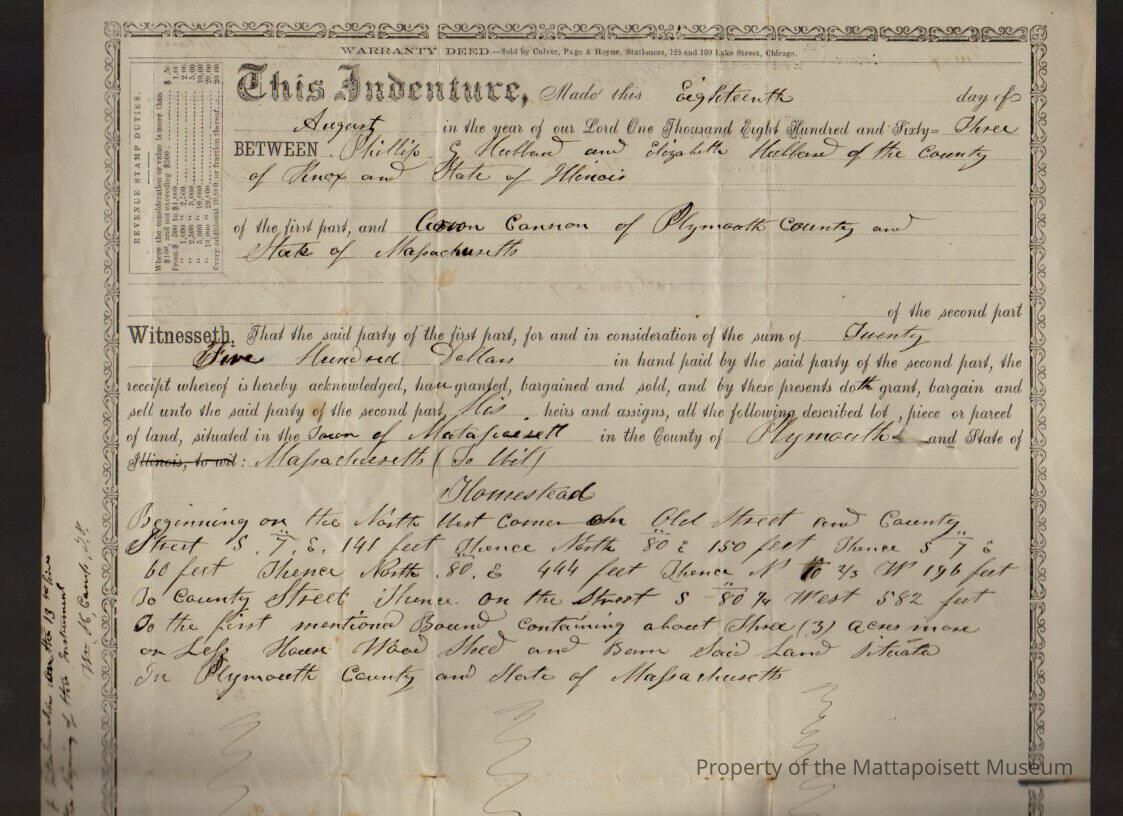 WARRANTY DEED.—Sold by Culver, Page & Hoyne, Stationers, 128 and 130 Lake Street, Chicago.
REVENUE STAMP DUTIES.
Where the consideration or value is more than
$100, and not exceeding $500,
Every additional 10,000, or fraction thereof,
This Indenture, Made this Eighteenth day of
August in the year of our Lord One Thousand Eight Hundred and Sixty= Three
BETWEEN Phillip E Hubbard and Elizabeth Hubbard of the County
of Knox and State of Illinois
of the first part, and Aaron Cannon of Plymouth County and
State of Massachusetts
of the second part
Witnesseth, That the said party of the first part, for and in consideration of the sum of Twenty
Five Hundred Dollars in hand paid by the said party of the second part, the
receipt whereof is hereby acknowledged, have granted, bargained and sold, and by these presents doth grant, bargain and
sell unto the said party of the second part, His heirs and assigns, all the following described lot , piece or parcel
of land, situated in the Town of Matapoisett in the County of Plymouth and State of
Illinois, to wit: Massachusetts (To Wit)
Homestead
Beginning on the North West corner on Old Street and County
Street S. 7. E. 141 feet Thence North 80 E 150 feet Thence S 7 E
60 feet Thence North .80. E 444 feet Thence N 10 2/3 W 196 feet
To County Street Thence on the Street S 80 1/4 West 582 feet
To the first mentiond Bound containing about Three (3) acres more
or Less House Wood Shed and Barn Said Land Situate
In Plymouth County and State of Massachusetts
the signing of this Instrument
Property of the Mattapoisett Museum